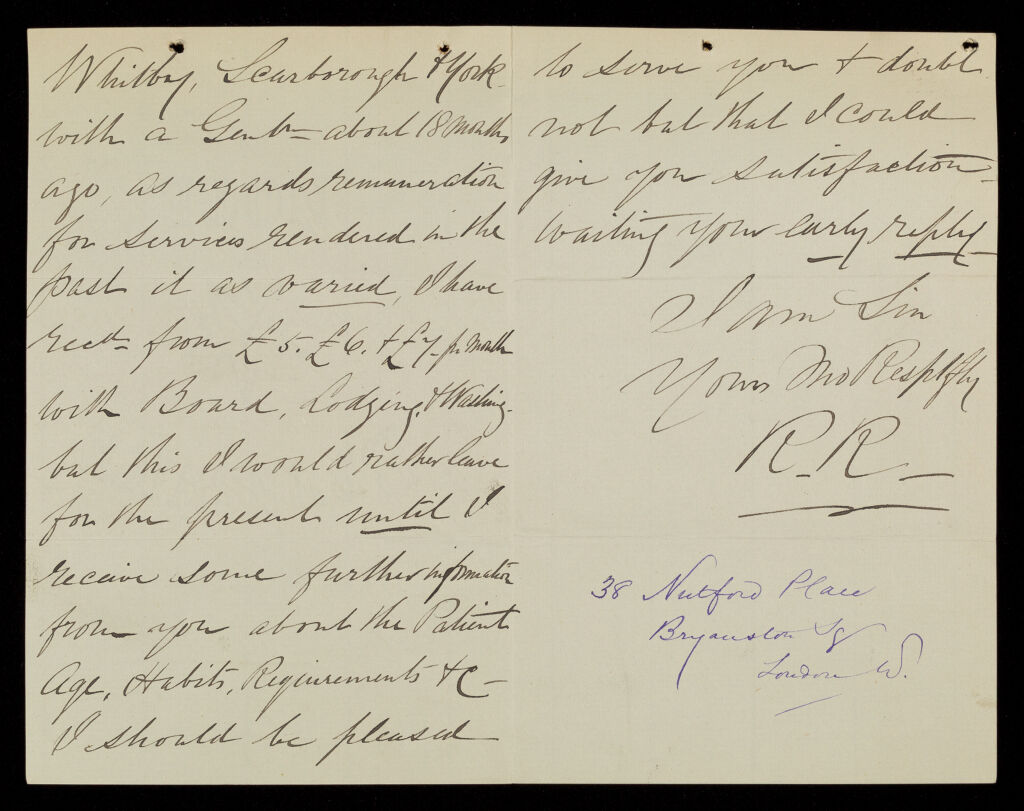 Whitby, Scarborough & York
with a Gentn about 18 months
ago, as regards remuneration
for services rendered in the
past it as varied, I have
recd from £5. £6. & £7 pr month
with Board, Lodging, & Washing.
but this I would rather leave
for the present until I
receive some further information
from you about the Patient
Age, Habits, Requirements &c
I should be pleased
to serve you & doubt
not but that I could
give you satisfaction
waiting your early reply
I am Sir
Yours Mo Respectfly
R. R.
38 Nutford Place
Bryanston Sq
London W.